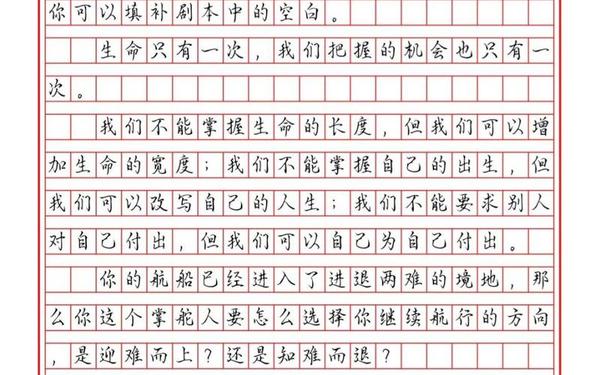 你可以填补剧本中的空白。
生命只有一次，我们把握的机会也只有一
次。
我们不能掌握生命的长度，但我们可以增
加生命的宽度；我们不能掌握自己的出生，但
我们可以改写自己的人生；我们不能要求别人
对自己付出，但我们可以自己为自己付出。
你的航船已经进入了进退两难的境地，那
么你这个掌舵人要怎么选择你继续航行的方向
，是迎难而上？还是知难而退？